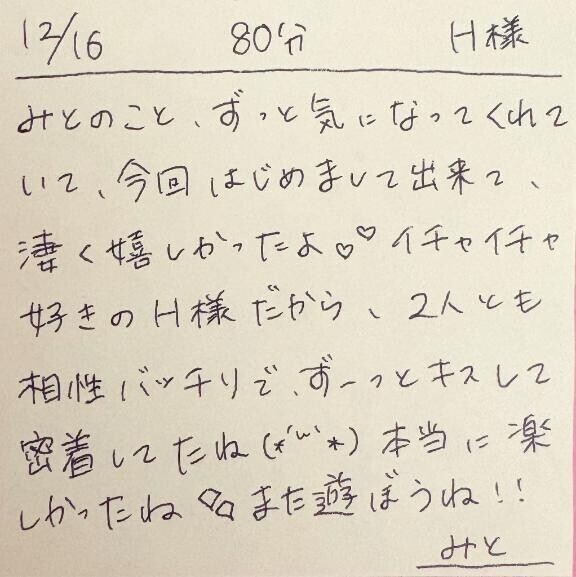 12/16 80分 H様
みとのこと、ずっと気になってくれて
いて、今回はじめまして出来て、
凄く嬉しかったよ♡♡イチャイチャ
好きのH様だから、2人とも
相性バッチリで、ずーっとキスして
密着してたね(*´ω`*)本当に楽
しかったね また遊ぼうね!!
みと